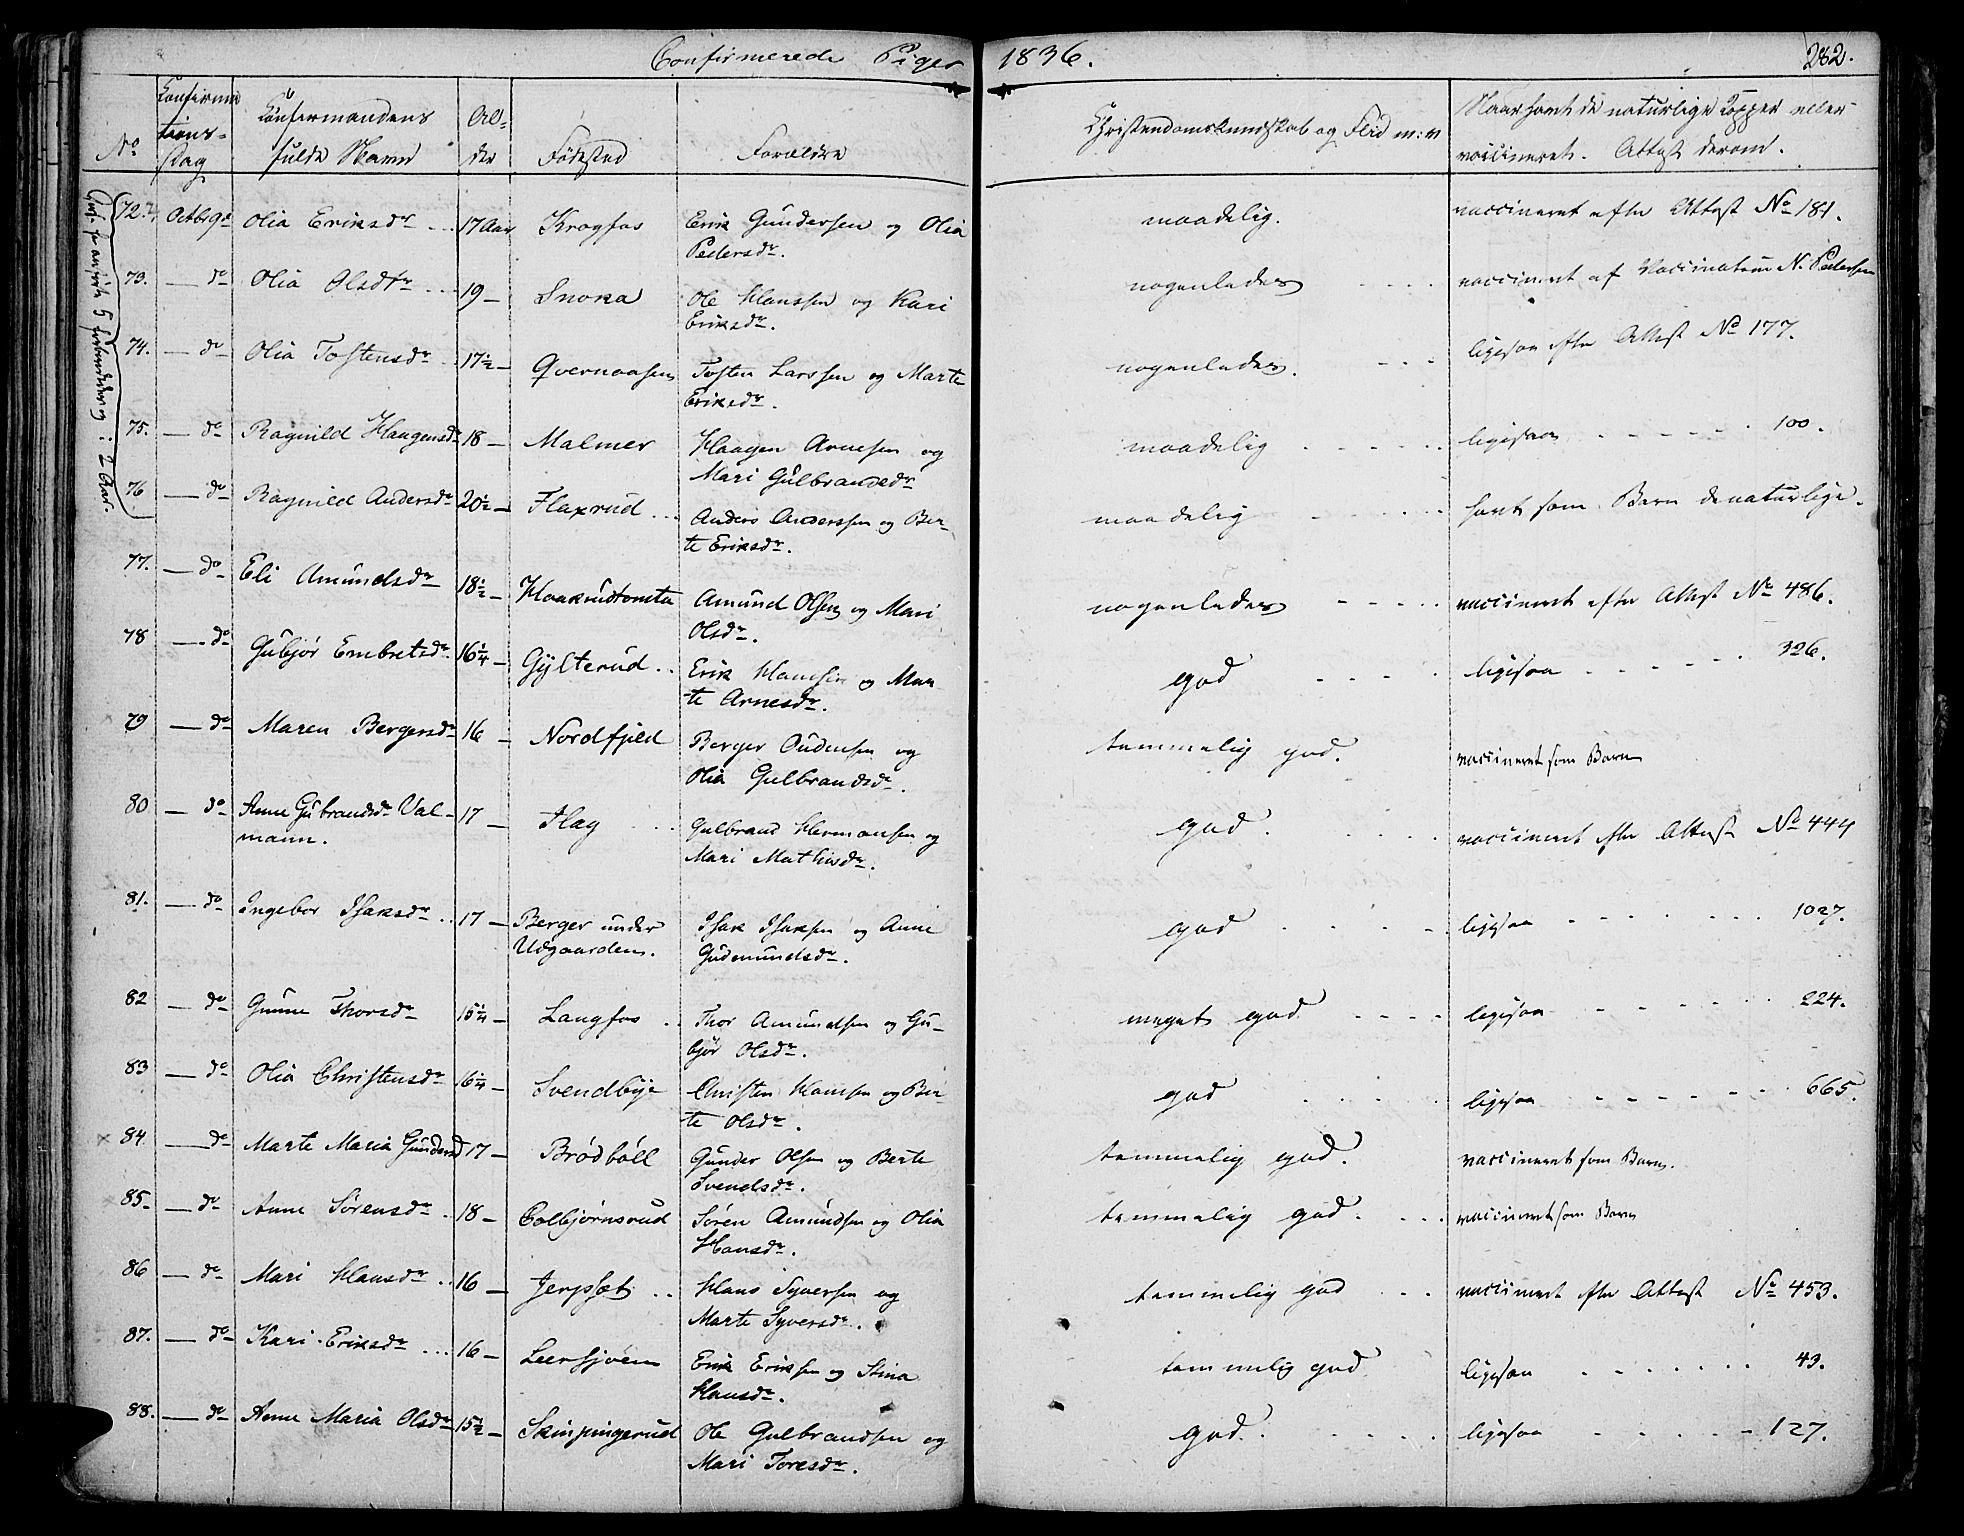 Confirmerede Piger 1836. 282.
No Confirmations-Dag Confirmandens fulde Navn Alder Fødested Forældre Christendomskundskab og Flid m:v Naar havt de naturlige Kopper eller vaccineret. Attest derom.
72. Octbr 9de Olia Eriksdr 17 Aar Krogfos Erik Gundersen og Olia maadelig. vaccineret efter Attest No 181.
Pedersdr.
73. — do Olia Olsdtr 19 — Snoka Ole Hanssen og Kari nogenledes vaccineret af Vaccinateur N. Pedersen
Eriksdr.
74. — do Olia Tostensdr 17½ — Qvernaasen Tosten Larssen og Marte nogenledes. ligesaa efter Attest No 177.
Eriksdr.
75. — do Ragnild Haagensdr 18 — Malmer Haagen Arnesen og maadelig ligesaa 100.
Mari Gulbrandsdr
76 — do Ragnild Andersdr 20½ — Flaxrud Anders Anderssen og Ber- maadelig havt som Barn de naturlige.
te Eriksdr.
77. — do Eli Amundsdr 18½ — Haakrudtomta Amund Olsen og Mari nogenledes vaccineret efter Attest No 486.
Olsdr.
78 — do Gubjør Embretsdr 16¼ — Gylterud Erik Hansen og Mar- god ligesaa 326.
te Arnesdr.
79 — do Maren Bergersdr 16 — Nordfjeld Berger Oudensen og temmelig god. vaccineret som Barn
Olia Gulbrandsdr.
80 — do Anne Gubrandsdr Val- 17 — Flag Gulbrand Hermansen og god. vaccineret efter Attest No 444
mann. Mari Mathisdr.
81. — do Ingebor Isaksdr 17 — Berger under Isak Isaksen og Anne god ligesaa 1027.
Udgaarden. Gudmundsdr.
82 — do Gunne Thorsdr 15¼ — Langfos Thor Amundsen og Gu- meget god ligesaa 224.
bjør Olsdr.
83 — do Olia Christensdr 16¼ — Svendbye Christen Hansen og Ber- god ligesaa 665.
te Olsdr.
84. — do Marte Maria Gundersd 17 — Brødbøll Gunder Olsen og Berte temmelig god. vaccineret som Barn.
Svendsdr.
85. — do Anne Sørensdr 18 — Colbjørnsrud Søren Amundsen og Olia temmelig god. vaccineret som Barn
Hansdr.
86 — do Mari Hansdr 16 — Jerpset Hans Syversen og temmelig god vaccineret efter Attest No 453.
Marte Syversdr.
87. — do Kari Eriksdr 16 — Leersjøen Erik Eriksen og Stina temmelig god ligesaa 43.
Hansdr.
88. — do Anne Maria Olsdr 15½ — Skinpingerud Ole Gulbrandsen og god. ligesaa 127.
Mari Toresdr.